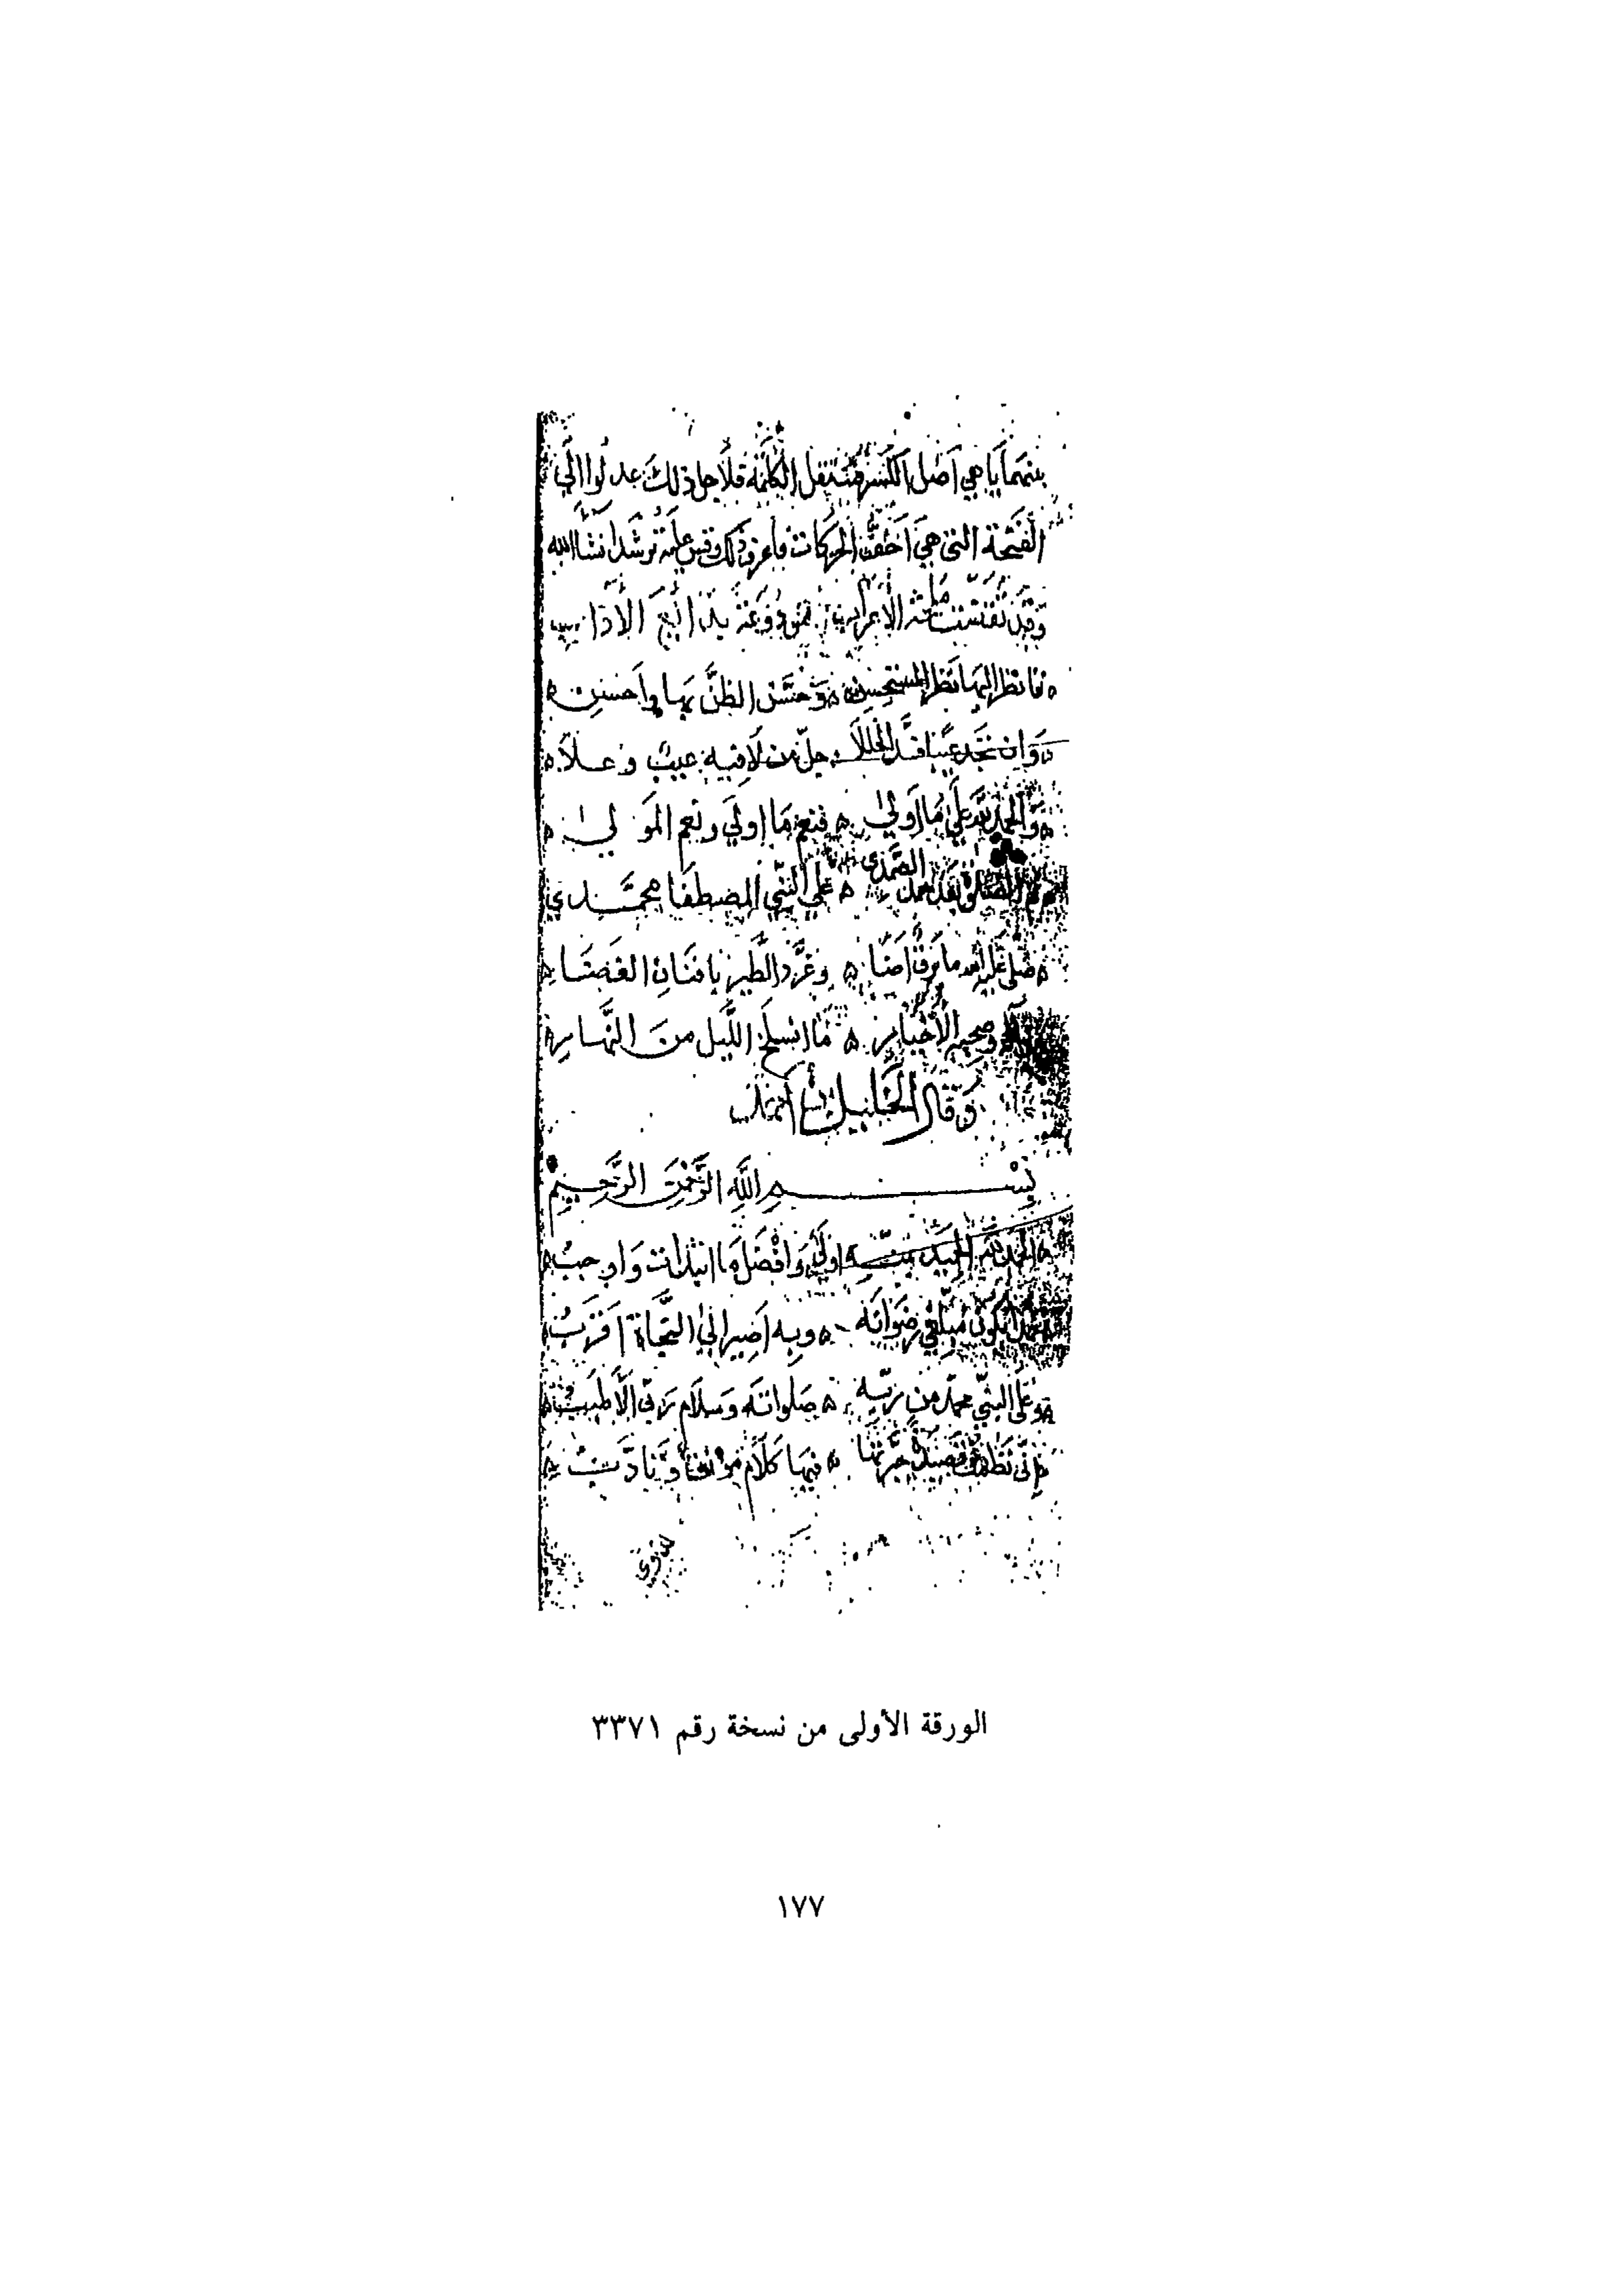 بينهما يا هي أصل الكسر فتثقل الكلمة فلأجل ذلك عدلوا إلى
الفتحة التي هي أخف الحركات فاعرف ذلك وقس عليه ترشد انشا الله
وقد تقضت ملحة الاعراب مودعة بدائع الآداب
فانظر اليها نظر المستحسن وحسن الظن بها وأحسن
وان تجد عيبا فسد الخللا جل من لا فيه عيب وعلا
والحمد لله على ما أولى فنعم ما اولى ونعم المولى
ثم الصلوة بعد حمد الصمدي على النبي المصطفا محمدي
صلى عليه الله ما برق اضا وغرد الطير بافنان الغضا
وآله وصحبه الأخيار ما انسلخ الليل من النهار
وقال الخليل بن أحمد
بسم الله الرحمن الرحيم
الحمد لله الحميد بمنه اولى وافضل ما ابتدات واوجب
حمدا يكون مبلغي رضوانه وبه اصير الى النجاة اقرب
وعلى النبي محمد من ربه صلواته وسلام ربي الأطيب
اني نظمت قصيدة حبرتها فيها كلام مونق وتادب
الورقة الأولى من نسخة رقم ٣٣٧١
١٧٧